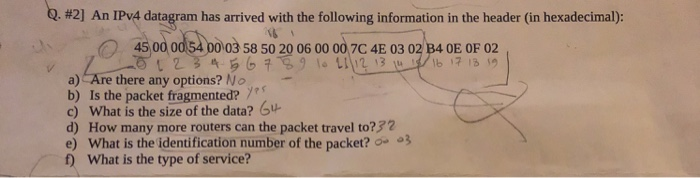 Q. #2] An IPv4 datagram has arrived with the following information in the header (in hexadecimal):
45 00 00 54 00 03 58 50 20 06 00 00 7C 4E 03 02 B4 0E 0F 02
0 1 2 3 4 5 6 7 8 9 10 11 12 13 14 15 16 17 18 19
a) Are there any options? No
b) Is the packet fragmented? Yes
c) What is the size of the data? 64
d) How many more routers can the packet travel to? 32
e) What is the identification number of the packet? 00 03
f) What is the type of service?